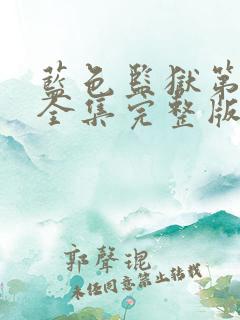 藍色監獄第
全集完整版
郭聲琨
未经同意禁止转载